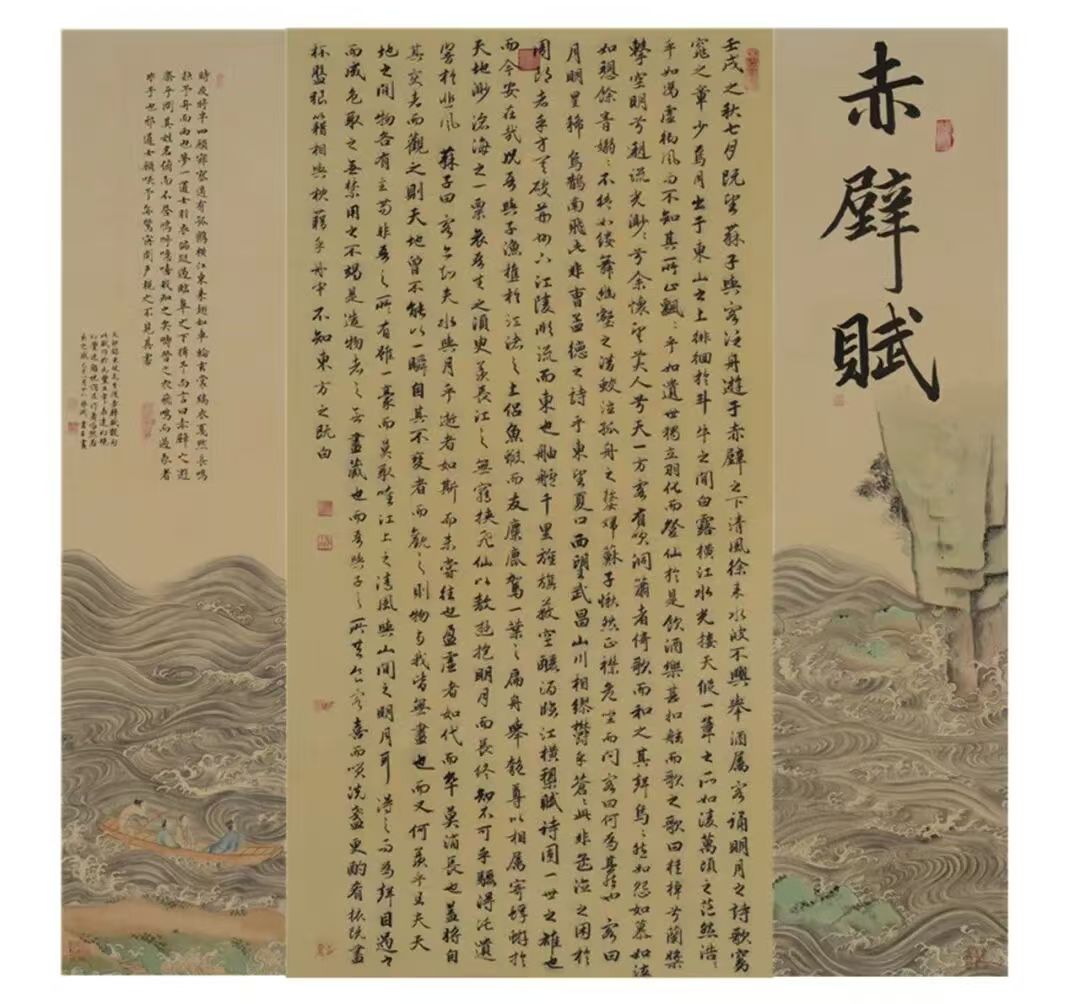 赤壁賦
壬戌之秋七月既望蘇子與客泛舟遊于赤壁之下清風徐來水波不興舉酒属客誦明月之詩歌窈
窕之章少焉月出于東山之上徘徊於斗牛之間白露橫江水光接天縱一葦之所如凌萬頃之茫然浩浩
乎如馮虛御風而不知其所止飄飄乎如遺世獨立羽化而登仙於是飲酒樂甚扣舷而歌之歌曰桂棹兮蘭槳
擊空明兮溯流光渺渺兮余懷望美人兮天一方客有吹洞簫者倚歌而和之其聲烏烏然如怨如慕如泣
如愬餘音嫋嫋不絕如縷舞幽壑之潛蛟泣孤舟之嫠婦蘇子愀然正襟危坐而問客曰何為其然也客曰
月明星稀烏鵲南飛此非曹孟德之詩乎東望夏口西望武昌山川相繆鬱乎蒼蒼此非孟德之困於
周郎者乎方其破荊州下江陵順流而東也舳艫千里旌旗蔽空釃酒臨江橫槊賦詩固一世之雄也
而今安在哉況吾與子漁樵於江渚之上侶魚蝦而友麋鹿駕一葉之扁舟舉匏尊以相属寄蜉蝣於
天地渺滄海之一粟哀吾生之須臾羨長江之無窮挾飛仙以遨遊抱明月而長終知不可乎驟得託遺
響於悲風蘇子曰客亦知夫水與月乎逝者如斯而未嘗往也盈虛者如代而卒莫消長也蓋將自
其變者而觀之則天地曾不能以一瞬自其不變者而觀之則物與我皆無盡也而又何羨乎且夫天
地之間物各有主苟非吾之所有雖一毫而莫取唯江上之清風與山間之明月耳得之而為聲目遇之
而成色取之無禁用之不竭是造物者之無盡藏也而吾與子之所共食客喜而笑洗盞更酌肴核既盡
杯盤狼籍相與枕藉乎舟中不知東方之既白
時夜將半四顧寂寥適有孤鶴橫江東來翅如車輪玄裳縞衣戛然長鳴
掠予舟而西也夢一道士羽衣蹁躚過臨皋之下揖予而言曰赤壁之遊
樂乎問其姓名俯而不答嗚呼噫嘻我知之矣疇昔之夜飛鳴而過我者
非子也耶道士顧笑予亦驚寤開戶視之不見其處